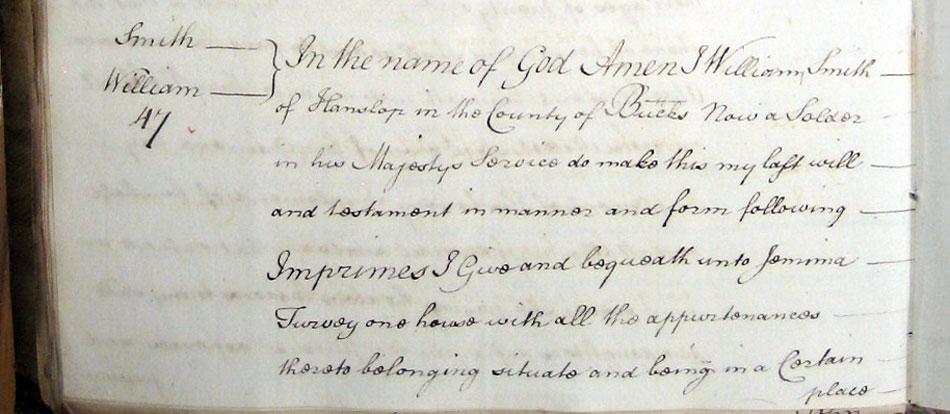 Smith
William
47
In the name of God Amen I William Smith
of Hanslop in the County of Bucks Now a Solder
in his Majestys Service do make this my last will
and testament in manner and form following
Imprimes I Give and bequeath unto Jemima
Turvey one house with all the appurtenances
thereto belonging situate and being in a Certain
place